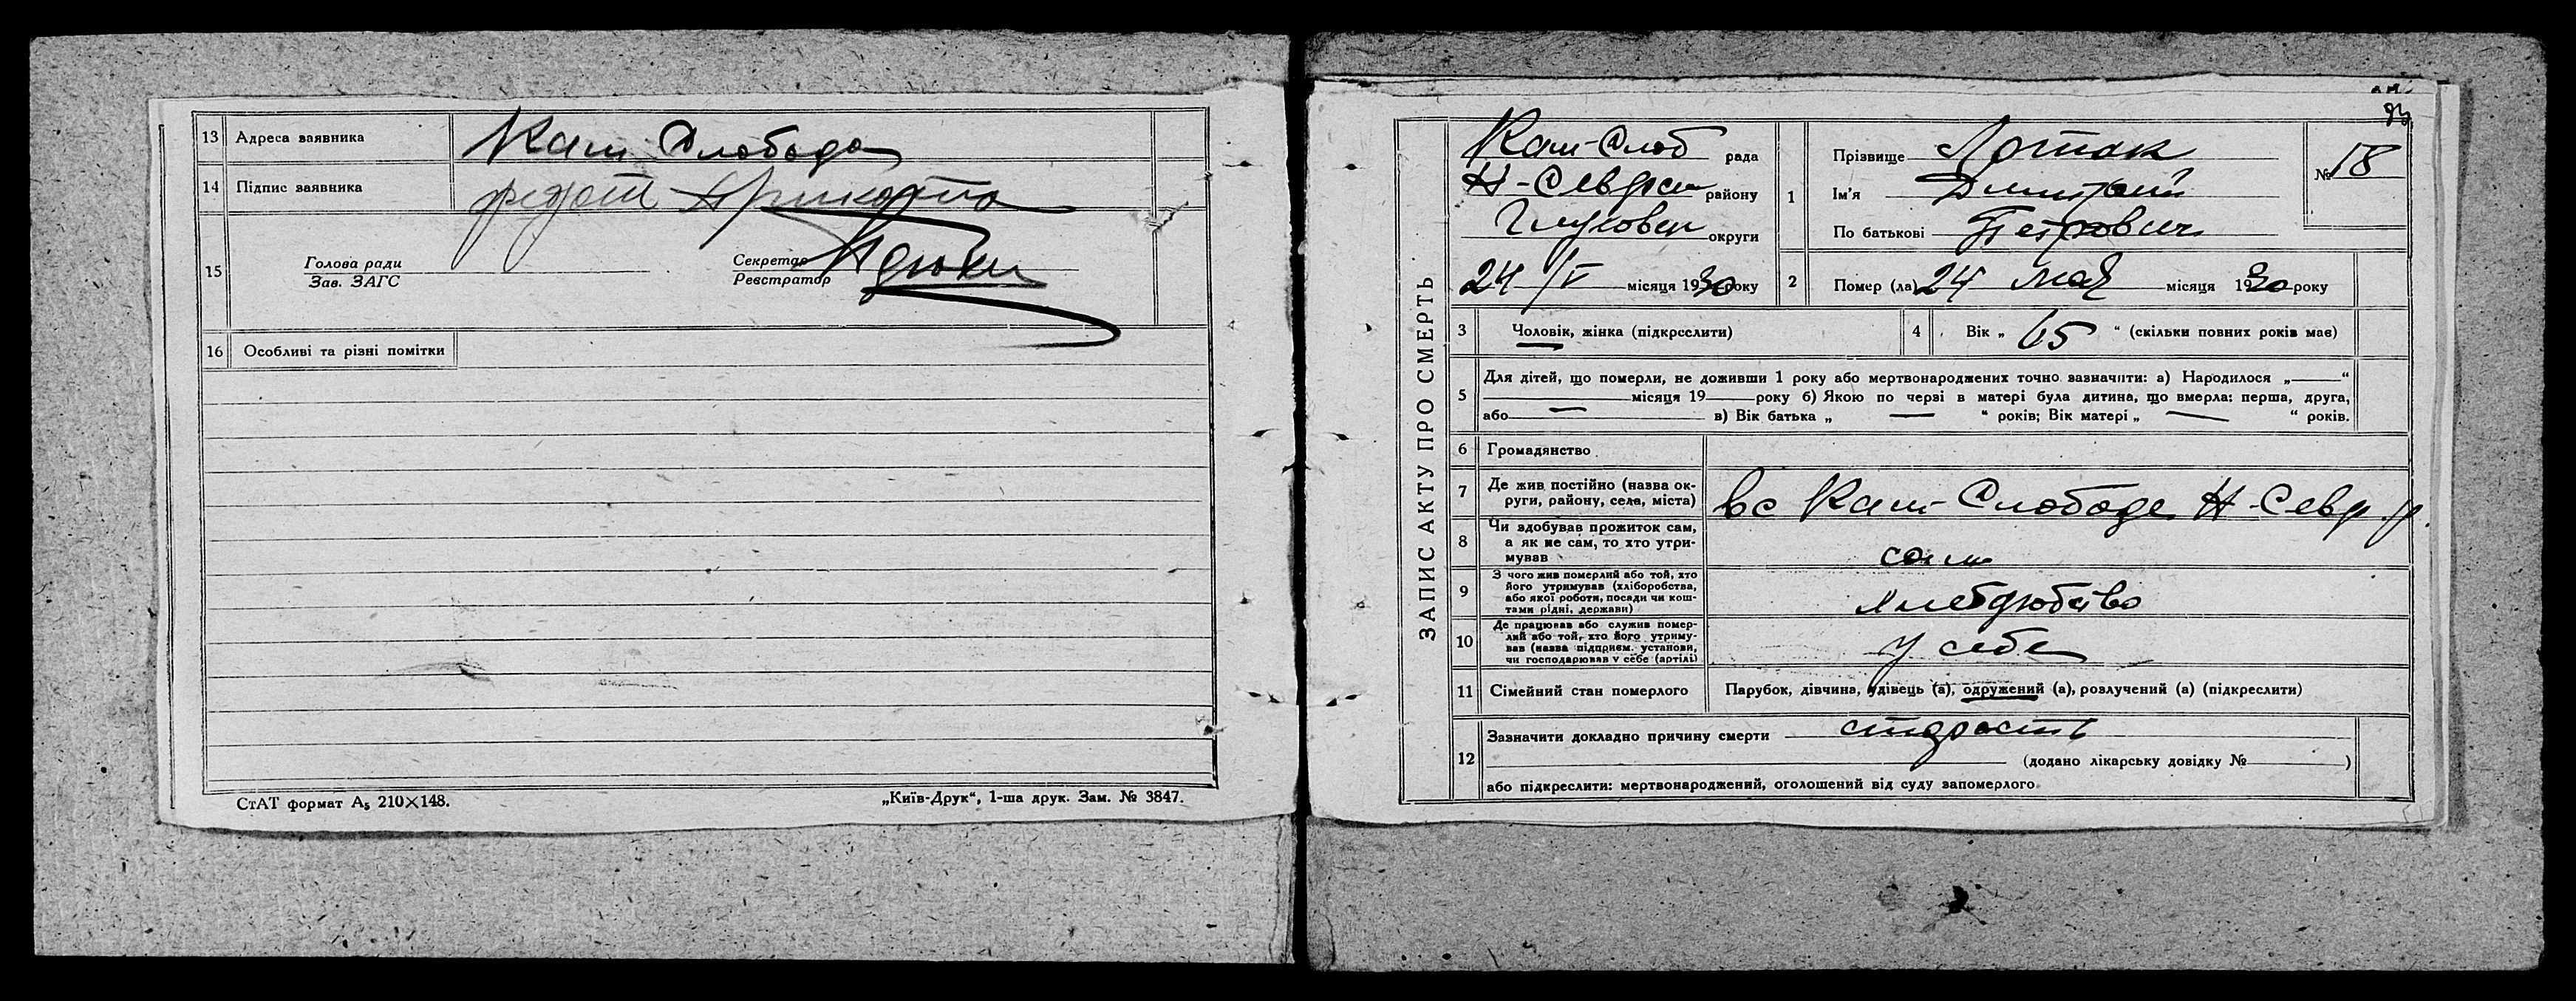 13 Адреса заявника Кам Слобода
14 Підпис заявника
15 Голова ради
Зав. ЗАГС
Секретар
Реєстратор
16 Особливі та різні помітки
СтАТ формат А₅ 210×148.
„Київ-Друк“, 1-ша друк. Зам. № 3847.
ЗАПИС АКТУ ПРО СМЕРТЬ
93
Кам-Слоб рада
Н-Сіверськ району
Глуховск округи
24/V місяця 1930 року
1 Прізвище Лотак
Ім'я Дмитрий
По батькові Петрович
№ 18
2 Помер (ла) 24 мая місяця 1930 року
3 Чоловік, жінка (підкреслити)
4 Вік „ 65 “ (скільки повних років має)
5 Для дітей, що померли, не доживши 1 року або мертвонароджених точно зазначити: а) Народилося „——“
місяця 19—— року б) Якою по черзі в матері була дитина, що вмерла: перша, друга,
або — в) Вік батька „ — “ років; Вік матері „ — “ років.
6 Громадянство
7 Де жив постійно (назва ок-
руги, району, села, міста) в с Кам-Слободе Н-Севр. р.
8 Чи здобував прожиток сам,
а як не сам, то хто утри-
мував сам
9 З чого жив померлий або той, хто
його утримував (хліборобства,
або якої роботи, посади чи кош-
тами рідні, держави)
10 Де працював або служив помер-
лий або той, хто його утриму-
вав (назва підприєм. установи,
чи господарював у себе (артілі) у себе
11 Сімейний стан померлого Парубок, дівчина, удівець (а), одружений (а), розлучений (а) (підкреслити)
12 Зазначити докладно причину смерти старость
(додано лікарську довідку № )
або підкреслити: мертвонароджений, оголошений від суду запомерлого.